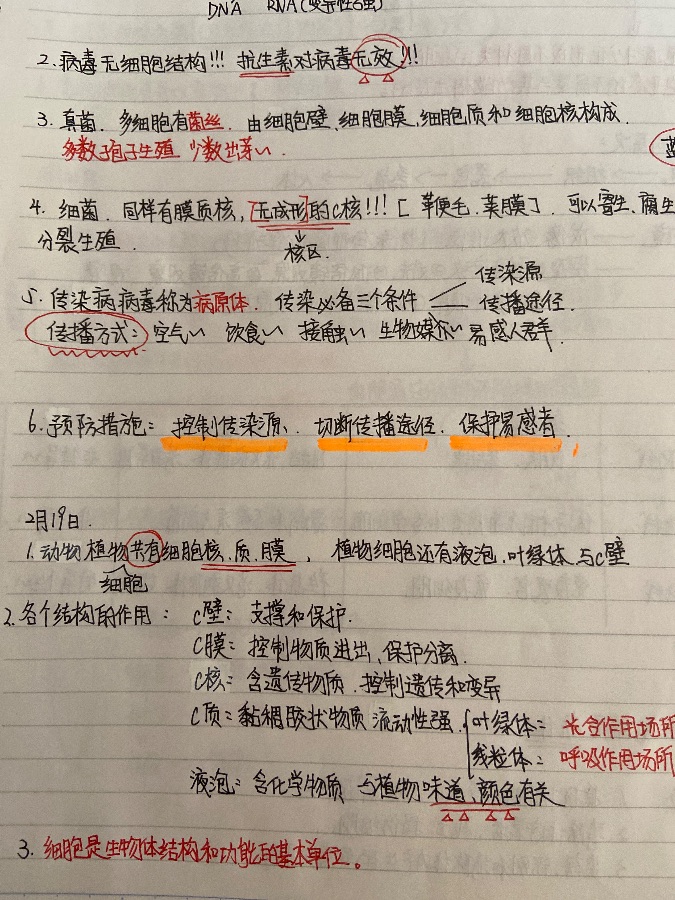 DNA RNA(变异性强)
2.病毒无细胞结构!!! 抗生素对病毒无效!!!
3.真菌.多细胞有菌丝.由细胞壁、细胞膜,细胞质和细胞核构成.
多数孢子生殖 少数出芽〃.
4.细菌.同样有膜质核,[无成形]的c核!!![鞭毛.荚膜].可以寄生、腐生
↓
分裂生殖. 核区.
5.传染病病毒称为病原体. 传染必备三个条件 传染源
传播途径.
传播方式: 空气〃 饮食〃 接触〃 生物媒介〃 易感人群.
6.预防措施: 控制传染源、切断传播途径.保护易感者.
2月19日.
1.动物植物共有细胞核.质.膜, 植物细胞还有液泡.叶绿体.与c壁
细胞
2.各个结构的作用: c壁: 支撑和保护.
c膜: 控制物质进出、保护分离.
c核: 含遗传物质.控制遗传和变异
c质: 黏稠胶状物质 流动性强. 叶绿体: 光合作用场所
线粒体: 呼吸作用场所
液泡: 含化学物质 与植物味道、颜色有关
3.细胞是生物体结构和功能的基本单位。